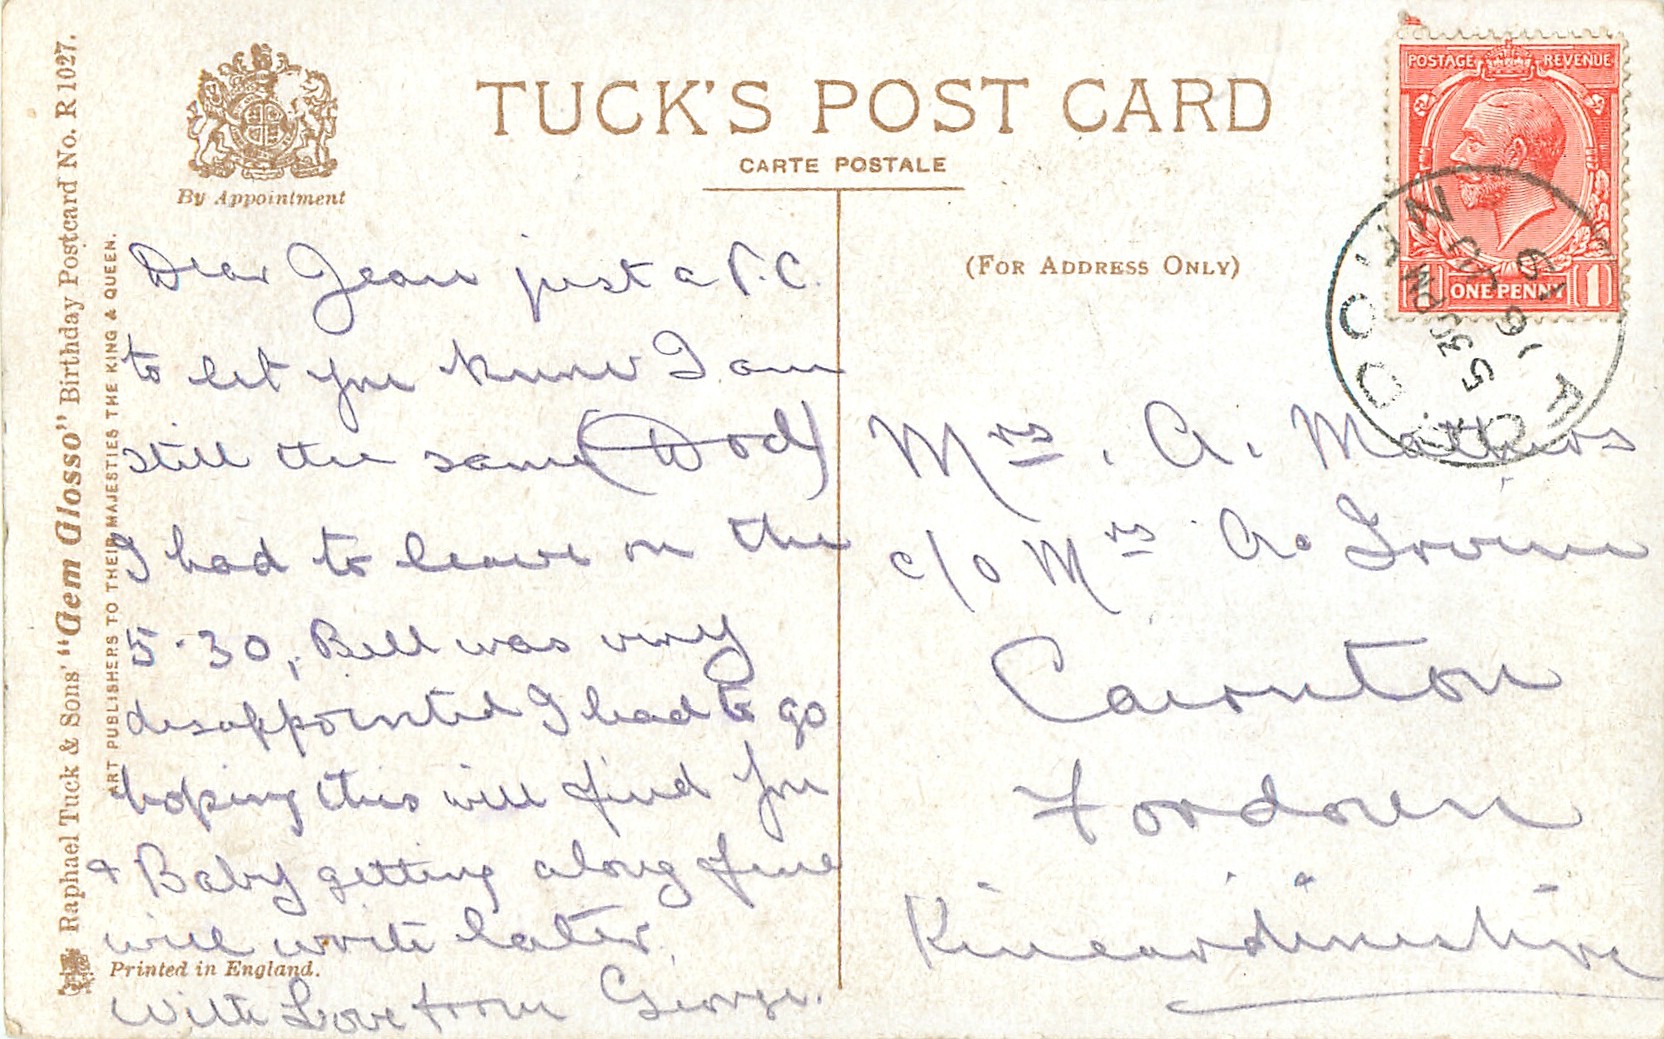 TUCK'S POST CARD
CARTE POSTALE
By Appointment
(FOR ADDRESS ONLY)
POSTAGE REVENUE
1 ONE PENNY 1
Raphael Tuck & Sons' "Gem Glosso" Birthday Postcard No. R 1027.
ART PUBLISHERS TO THEIR MAJESTIES THE KING & QUEEN.
Dear Jean just a P.C.
to let you know I am
still the same (Dod)
I had to leave on the
5.30, Bill was very
disappointed I had to go
hoping this will find you
& Baby getting along fine
will write later
With Love from George.
Printed in England.
Mrs. A. Mathers
c/o Mrs A. Irvine
Cairnton
Fordoun
Kincardineshire